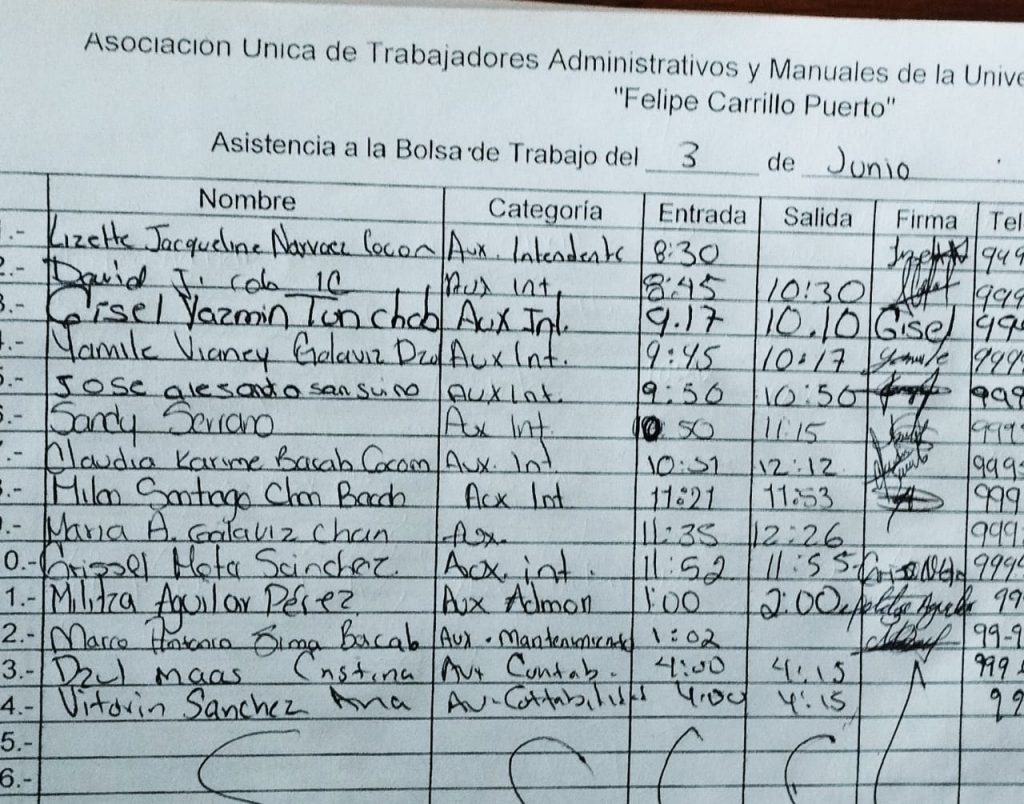 Asociación Unica de Trabajadores Administrativos y Manuales de la Unive
"Felipe Carrillo Puerto"
Asistencia a la Bolsa de Trabajo del 3 de Junio
Nombre Categoría Entrada Salida Firma Tel
.- Lizette Jacqueline Narvaez Cocon Aux. Intendente 8:30 949
2.- David J. Cob IC Aux Int 8:45 10:30 999
3.- Gisel Yazmin Tun Chab Aux Int. 9.17 10.10 Gisel 99
.- Yamile Vianey Galaviz Aux Int. 9:45 10:17 Yamile 9999
5.- Jose Aux Int. 9:50 10:50 999
6.- Sandy Serrano Ax Int 10 50 11:15 999
.- Claudia Karime Bacab Cocom Aux. Int 10:51 12:12 999
8.- Santiago Chan Bacab Aux Int 11:21 11:53 999
.- Maria A. Galaviz Chan Ax. 11:35 12:26 999
0.- Grissel Mota Sánchez. Aox. int. 11:52 11:55 9999
1.- Militza Aguilar Pérez Aux Admon 1:00 2:00 99
2.- Marco Antonio Sima Bacab Aux. Mantenimiento 1:02 99-9
3.- Dzul maas Cristina Aux Contab. 4:00 4:15 999
4.- Vitorin Sanchez Ana 4:00 4:15 99
5.-
6.-